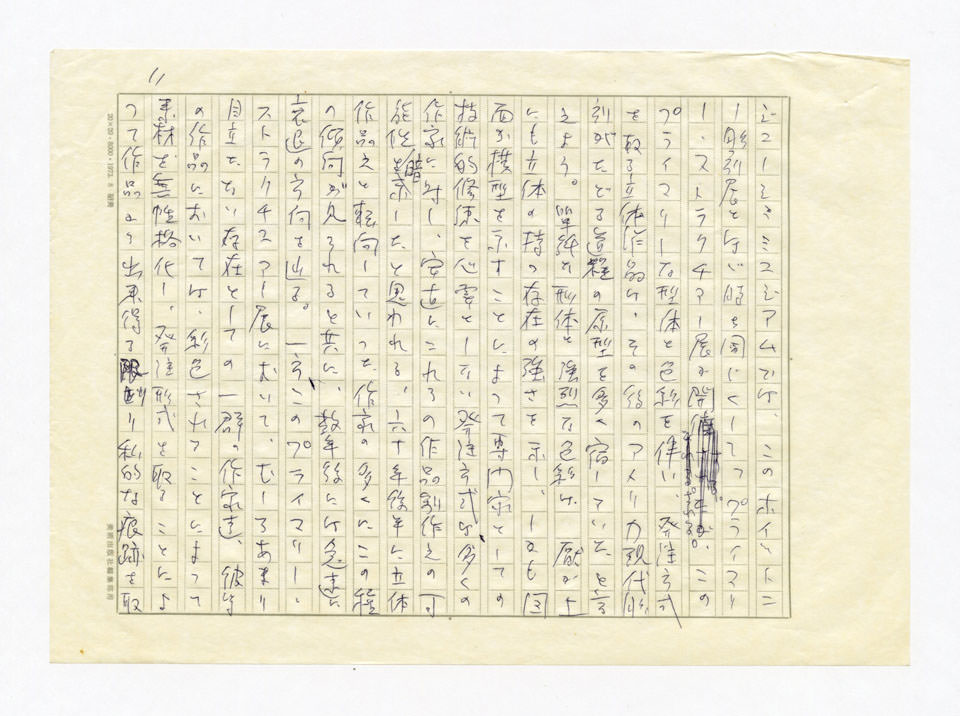 11
ジューイッシュミュージアムでは、このホイットニ
ー彫刻展とほぼ時を同じくして「プライマリ
ー・ストラクチャー展が開催された。この
プライマリーな型体と色彩を伴い 発注方式
を取る立体作品は、その後のアメリカ現代彫
刻がたどる道程の原型を多く宿していたと言
えよう。単純な型体と強烈な色彩は、厭が上
にも立体の持つ存在の強さを示し、しかも図
面か模型を示すことによって専門家としての
技術的修練を必要としない発注方式は多くの
作家に対し、安直にこれらの作品制作えの可
能性を暗示したと思われる、六十年後半に立体
作品えと転向していった作家の多くにこの種
の傾向が見られると共に、数年後には急速に
衰退の方向を辿る。一方このプライマリー・
ストラクチュアー展において、むしろあまり
目立たない存在としての一群の作家達、彼等
の作品においては、彩色されることによって
素材を無性格化し、発注形式を取ることによ
って作品より出来得る限り私的な痕跡を取
20×20・8000・1973.8 昭英
美術出版社編集部用